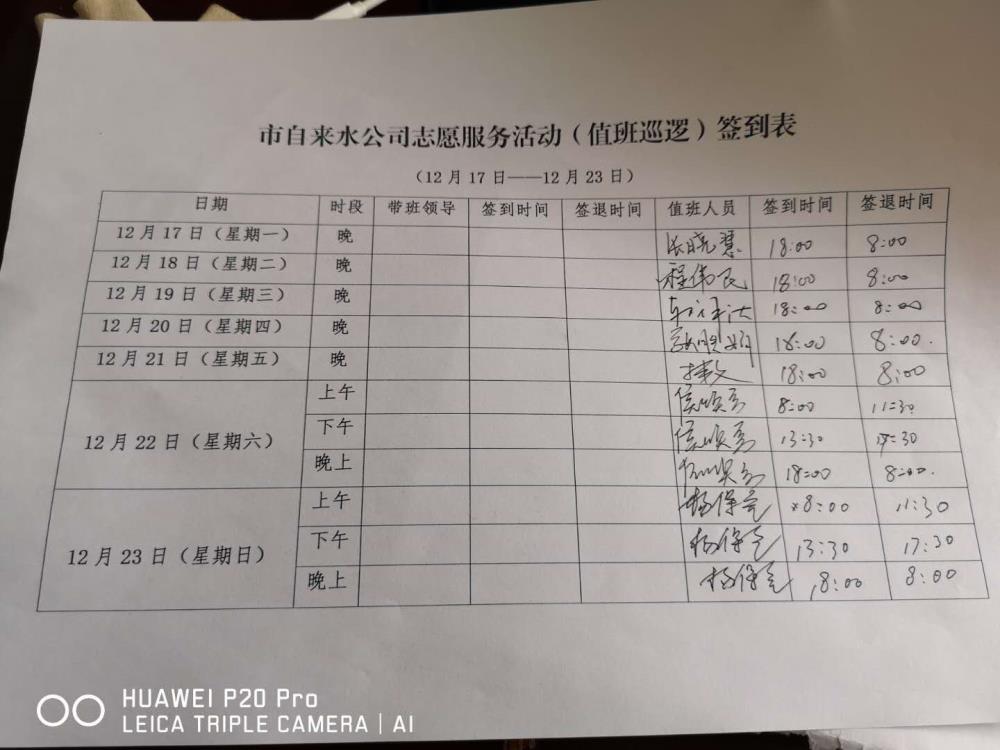 市自来水公司志愿服务活动（值班巡逻）签到表
（12月17日——12月23日）
日期 时段 带班领导 签到时间 签退时间 值班人员 签到时间 签退时间
12月17日（星期一） 晚 张晓慧 18:00 8:00
12月18日（星期二） 晚 程伟民 18:00 8:00
12月19日（星期三） 晚 18:00 8:00
12月20日（星期四） 晚 18:00 8:00.
12月21日（星期五） 晚 18:00 8:00
12月22日（星期六） 上午 侯顺高 8:00 11:30
下午 侯顺高 13:30 17:30
晚上 18:00 8:00.
12月23日（星期日） 上午 杨保全 8:00 11:30
下午 杨保全 13:30 17:30
晚上 杨保全 18:00 8:00
HUAWEI P20 Pro
LEICA TRIPLE CAMERA | AI